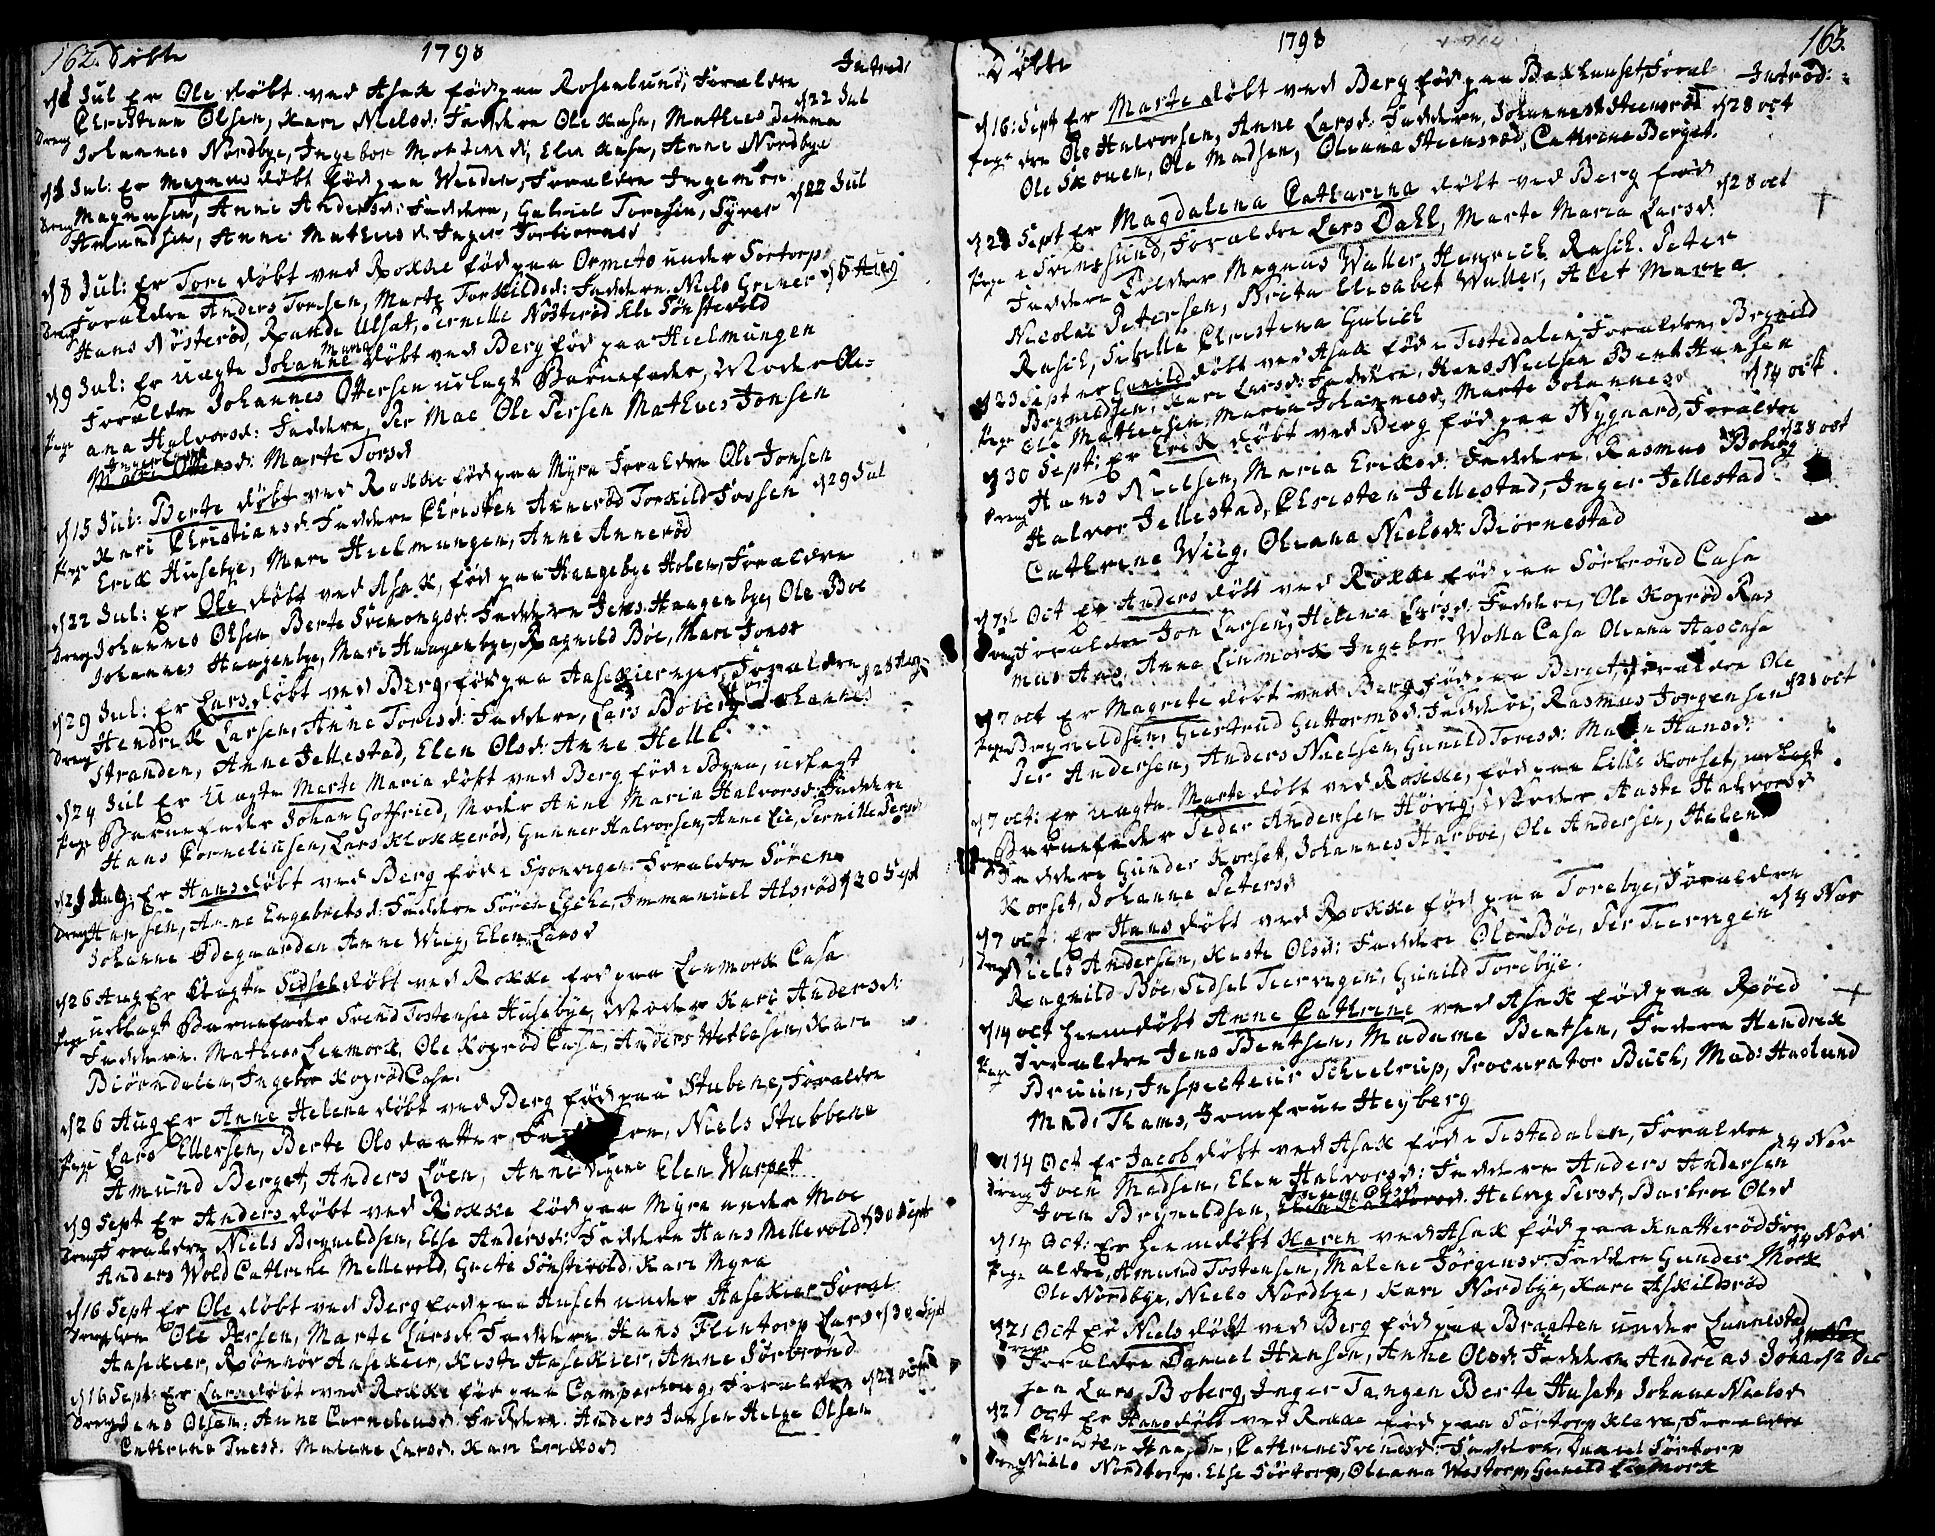 162. Döbte 1798 Introd:
d 1 Jul Er Ole döbt ved Asak föd paa Rosenlund, Forældre
Christian Olsen, Kari Nielsd: Faddere Ole Kasa, Mathies Damma d 22 Jul
Dreng Johannes Nordbye, Ingebor d; Elen Kasa, Anne Nordbye
d Jul: Er Magnus döbt föd paa Weden, Forældre Ingemon
Magnusen, Anne Andersd: Faddere, Gabriel Toresen, Syver d 22 Jul
Dreng Amundsen, Anne Mathiesd Inger Torbiornsd
d 8 Jul: Er Tore döbt ved Rokke föd paa Ormeto under Sortorp
Forældre Anders Torsen, Marte Torkildsd: Faddere. Niels Greiner d 5 Aug
Dreng Hans Nösteröd, Rande Ulsat, Pernille Nösteröd Ole Sönstevold
d 9 Jul: Er uægte Johanne Maria döbt ved Berg föd paa Hielmungen
Forældre Johannes Ottersen udlagt Barnefader, Moder Ole-
Pige ana Halvorsd: Faddere, Per Moe Ole Persen Mathies Jonsen
Marte Torsd
d 15 Jul: Berte döbt ved Rokke föd paa Myra Forældre Ole Jonsen
Kari Christiansd: Faddere Christen Anneröd Torkild Torsen d 29 Jul
Pige Erik Husebye, Mari Hielmungen, Anne Anneröd
d 22 Jul: Er Ole döbt ved Asak, föd paa Haagebye Holen, Forældre
Johannes Olsen Berte Svenongsd: Faddere Jens Haagenbye, Ole Boe
Dreng Johannes Haagenbye, Mari Haagenbye, Ragnild Böe, Mari Jonsd
d 29 Jul: Er Lars döbt ved Berg, föd paa Aasekiernger, Forældre d 28 Aug
Hendrik Larsen, Anne Toresd: Faddere, Lars Boberg Johannes
Dreng Stranden, Anne Jellestad, Elen Olsd: Anne Helle
d 24 Jul Er Uægte Marte Maria döbt ved Berg föd i Byen, udlagt
Barnefader Johan Gotfried, Moder Anne Maria Halvorsd: Faddere
Pige Hans Corneliusen, Lars Klokkeröd, Gunner Halvorsen, Anne Lie, Pernille Persd
d 2 Aug: Er Hans döbt ved Berg föd i Sponvigen: Forældre Sören
Dreng Hansen, Anne Engebretsd: Faddere Sören Lyche, Immanuel Alsröd d 30 Sept
Johanne Ödegaarden Anne Wiig, Elen Larsd
d 26 Aug Er Uægte Sidsel döbt ved Rokke föd paa Lenmork Casa
Pige udlagt Barnefader Svend Tostensen Husebye, Moder Kari Andersd:
Faddere. Mathias Lenmork, Ole Kopröd Casa, Anders Wetlesen, Kari
Biörndalen, Ingebor Kopröd Casa.
d 26 Aug Er Anne Helena döbt ved Berg föd paa Stubene, Forældre
Pige Lars Ellersen, Berte Olsdaatter, Faddere, Niels Stubbene
Amund Berget, Anders Löen, Anne Vigene Elen Warpet
d 9 Sept Er Anders döbt ved Rokke föd paa Myra under Moe
Dreng Forældre Niels Bryneldsen, Else Andersd: Faddere Hans Mellevold d 30 Sept
Anders Wold Cathrine Mellevold, Grete Sönstivold, Kari Myra
d 16 Sept Er Ole döbt ved Berg föd paa Huset under Aasekier, Foræl
Dreng dre Ole Persen, Marte Larsd: Faddere Hans Flentorp Lars d 30 Sept
Aasekier, Rönnor Aasekier, Kirsti Aasekier, Anne Sörbrönd
d 16 Sept: Er Lars döbt ved Rokke föd paa Camperhoug, Forældre d 28 oct
Dreng Jens Olsen: Anne Corneliusd: Faddere. Anders Jansen Helge Olsen
Cathrine Tuesd. Malene Larsd. Kari Eriksd
Döbte 1798 163.
Introd:
d 16: Sept Er Marte döbt ved Berg föd paa Bakhuuset, Foræl
Pige dre Ole Halvorsen, Anne Larsd: Faddere, Johannes Steensröd d 28 oct
Ole Skouen, Ole Madsen, Oleana Steensröd, Cathrine Berget.
d 23 Sept Er Magdalena Catharina döbt ved Berg föd
Pige i Svinesund, Forældre Lars Dahl, Marte Maria Larsd: d 28 oct
Faddere Tolder Magnus Waller, Henrich Rasch. Peter
Nicolai Petersen, Brita Elisabet Waller, Alet Maria
Rasch, Sibilla Christena Gulich
d 23 Sept er Gunild döbt ved Asak föd i Tistedalen, Forældre, Brynild
Bryneldsen, Kari Larsd: Faddere, Hans Nielsen Bent Hansen
Pige Ole Mathiesen, Maria Johannesd, Marte Johannesd d 14 oct.
d 30 Sept: Er Erik döbt ved Berg föd paa Nygaard, Forældre
Hans Nielsen, Maria Eriksd: Faddere, Rasmus Boberg d 28 oct
Dreng Halvor Jellestad, Christen Jellestad, Inger Jellestad
Cathrine Wiig, Oleana Nielsd: Biörnestad
d 7 Oct Er Anders döbt ved Rokke föd paa Sörbrönd Casa
Dreng Forældre Jon Larsen, Helena Larsd: Faddere, Ole Kopröd Ras
mus Anne Lenmork Ingebor Wolla Casa Oleana Hasense
d 7 oct Er Magrete döbt ved Berg föd paa Berget, Forældre Ole
Pige Bryneldsen, Giertrud Guttormsd: Faddere, Rasmus Jorgensen d 28 oct
Per Andersen, Anders Nielsen, Gunild Toresd: Maren Hansd:
d 7 oct: Er uægte Marte döbt ved Rokke, föd paa Lille Korset, udlagt
Barnefader Peder Andersen Hövig, Moder Aaste Halvorsd
Faddere Gunder Korset, Johannes Harboe, Ole Andersen, Helene
Korset, Johanne Petersd
d 7 oct: Er Hans döbt ved Rokke föd paa Torebye, Forældre
Dreng Niels Andersen, Kirste Olsd: Faddere Ole Böe, Per Tiervigen d 4 Nov
Ragnild Böe, Sidsel Tiervigen, Gunild Torebÿe.
d 14 oct hiemdöbt Anne Cathrine ved Asak föd paa Röed
Pige Forældre Jens Bentsen, Madame Bentsen, Faddere Hendrik
Bruun, Inspecteur Schielrup, Procurator Buch, Mad: Haslund
Mad: Thams, Jomfrue Heyberg
d 14 Oct Er Jacob döbt ved Asak föd i Tistedalen, Forældre
Dreng Joen Madsen, Elen Halvorsd: Faddere Anders Andersen d 4 Nov
Joen Bryneldsen, Helvig Persd, Barbroe Olsd
d 14 Oct: Er hiemdöbt Karen ved Asak föd paa Knatteröd For
Pige ældre, Amund Tostensen, Malene Jörgensd: Faddere Gunder Mork d 4 Nov
Ole Nordbye, Niels Nordbye, Kari Nordbye, Kari Askildsröd
d 21 Oct Er Niels döbt ved Berg föd paa Braaten under Lunnestad
Dreng Forældre Daniel Hansen, Anne Olsd: Faddere Andreas Johan d 2 Dec
sen Lars Boberg, Inger Tangen Berte Husets Johane Nielsd
d 21 oct Er Hans döbt ved Rokke föd paa Sörtorp Kleva, Forældre
Christen Hansen, Cathrine Svendsd: Faddere, Sörtorp
Dreng Niels Nordtorp. Else Sörtorp, Oleana Westorp, Gunild Lenmork